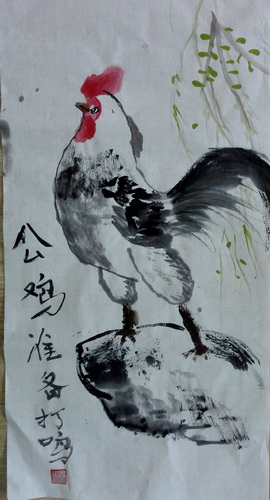 公鸡准备打鸣